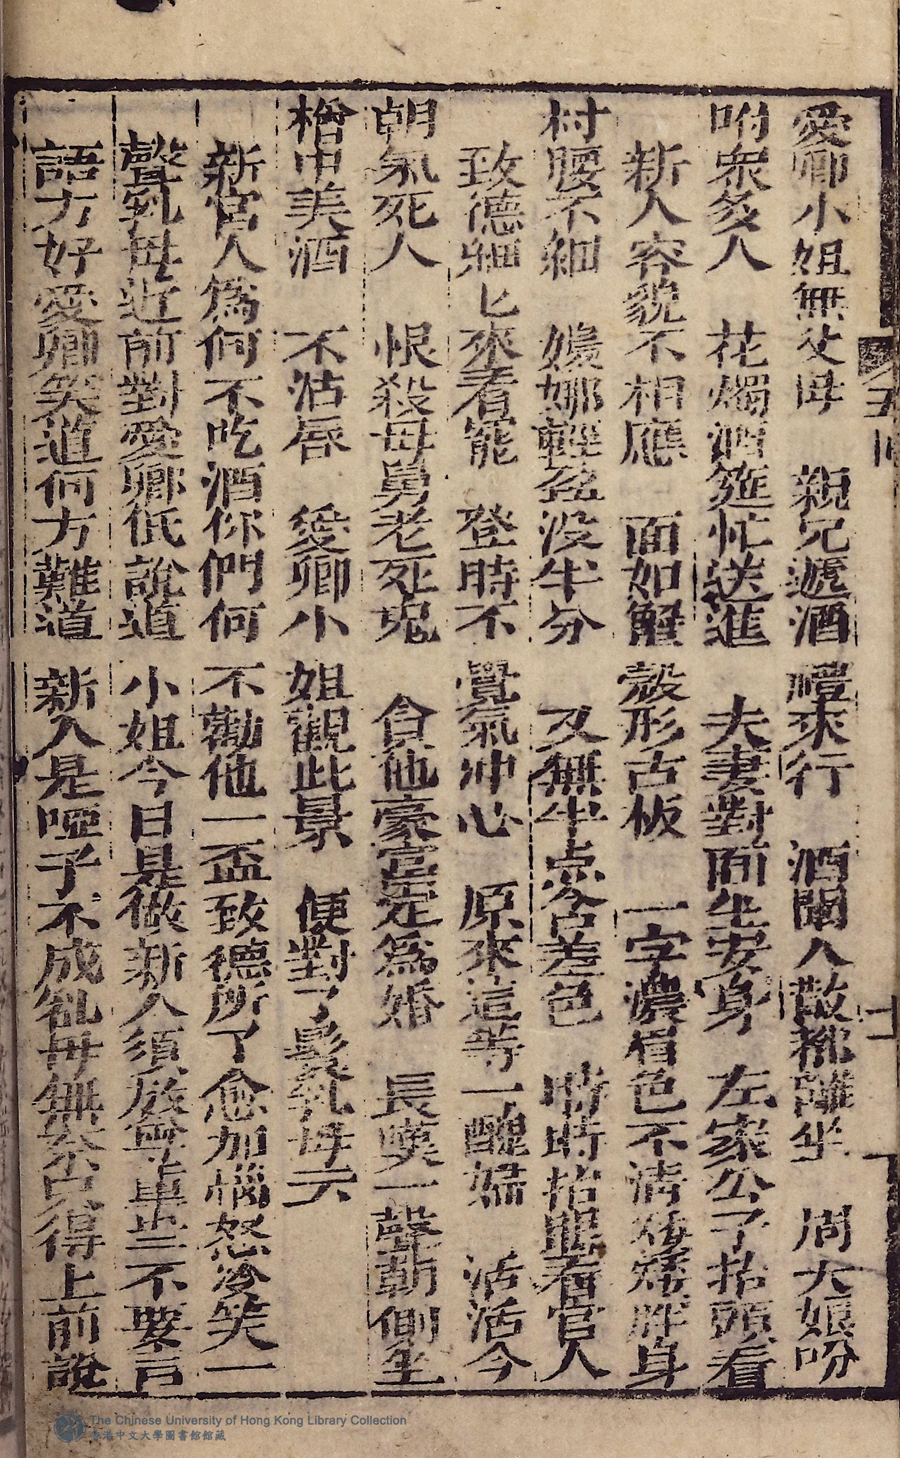 愛卿小姐無父母　親兄遞酒禮來行　酒闌人散都離坐　周大娘吩
咐衆多人　花燭酒筵忙送進　夫妻對面坐安身　左家公子抬頭看
新人容貌不相應　面如蟹殼形古板　一字濃眉色不清矮矮胖身
村腰不細　嬝娜輕盈没半分　又無半点差色　時時抬眼看官人
致德細匕來看罷　登時不覺氣冲心　原來這等一醜婦　活活今
朝氣死人　恨殺母舅老死鬼　貪他豪富定為婚　長嘆一聲朝側坐
樽中美酒　不沾唇　愛卿小姐觀此景　便對了髮乳母云
新官人爲何不吃酒你們何不勸他一盃致德所了愈加惱怒冷笑一
聲乳母近前對愛卿低說道小姐今日是做新人須放寧重些不要言
語方好愛卿笑道何方難道新人是啞子不成乳母無奈只得上前說
五回
十
The Chinese University of Hong Kong Library Collection
香港中文大學圖書館館藏